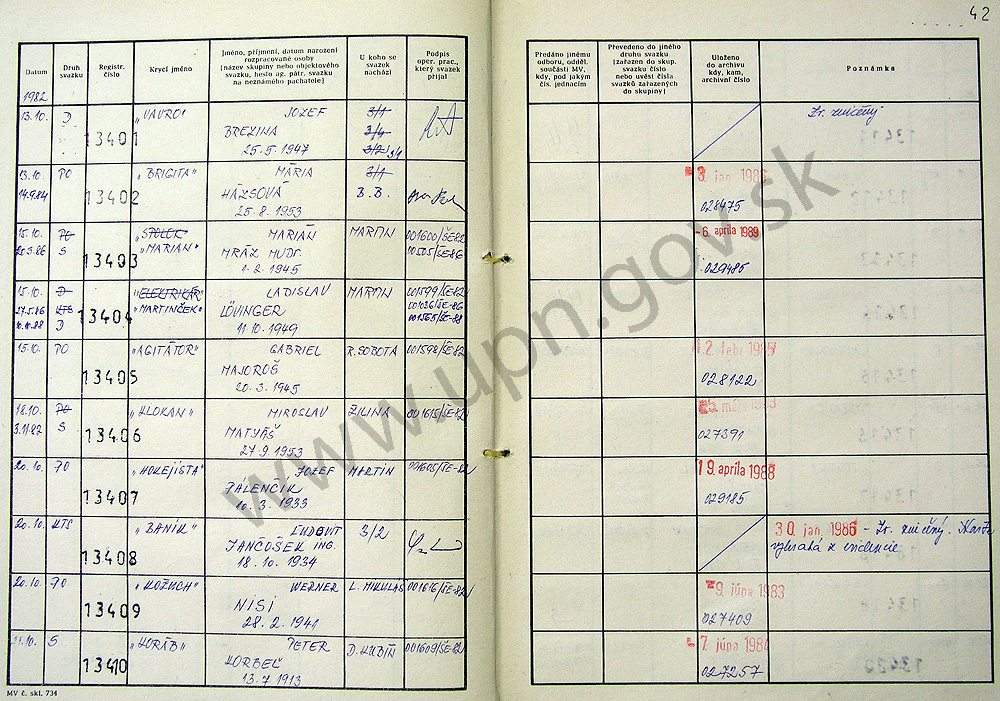 42
Datum
Druh svazku
Registr. číslo
Krycí jméno
Jméno, příjmení, datum narození rozpracované osoby [název skupiny nebo objektového svazku, heslo ag. pátr. svazku na neznámého pachatele]
U koho se svazek nachází
Podpis oper. prac., který svazek přijal
Předáno jinému odboru, odděl. součásti MV, kdy, pod jakým čís. jednacím
Převedeno do jiného druhu svazku [zařazen do skup. svazku číslo nebo uvést čísla svazků zařazených do skupiny]
Uloženo do archivu kdy, kam, archivní číslo
Poznámka
1982
13.10. D 13401 "VAVRO" JOZEF 3/1
BREZINA 3/4
25.5.1947 3/2 3/1
Zv. zničený
13.10 PO 13402 "BRIGITA" MÁRIA 3/1
14.9.84 HÁZSOVÁ B.B.
25.8.1953
3. jan 1985
028475
15.10. PO 13403 "SPOLOK" MARIÁN MARTIN 001600/ŠE-82
20.3.86 S "MARIAN" MRÁZ MUDr. 00505/ŠE-86
1.2.1945
-6. apríla 1989
029485
15.10. D 13404 "ELEKTRIKÁR" LADISLAV MARTIN 001599/ŠE-82
27.5.86 KTS "MARTINČEK" LÖVINGER 001036/ŠE-86
10.11.88 D 11.10.1949 001565/ŠE-88
15.10. PO 13405 "AGITÁTOR" GABRIEL R. SOBOTA 001598/ŠE-82
MAJOROŠ
20.3.1945
028122
18.10. PO 13406 "KLOKAN" MIROSLAV ŽILINA 001615/ŠE-82
3.11.82 S MATYÁŠ
27.9.1953
027391
20.10. PO 13407 "HOKEJISTA" JOZEF MARTIN 001605/ŠE-82
PALENČÍK
10.3.1933
19. apríla 1988
029185
20.10. KTS 13408 "BANÍK" ĽUDOVÍT 3/2
JANČUŠEK ING.
18.10.1934
30. jan. 1986 - Zv. zničený. Karta
vybratá z evidencie
20.10. PO 13409 "KOŽUCH" WERNER L. MIKULÁŠ 001616/ŠE-82
NISI
28.2.1941
9. júna 1983
027409
21.10. S 13410 "KORÁB" PETER D. KUBÍN 001609/ŠE-82
KORBEĽ
13.7.1913
7. júna 1984
027257
MV č. skl. 734
www.upn.gov.sk